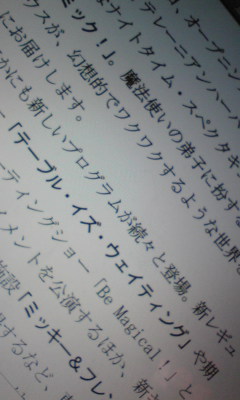 、オープニン
テレーニアンハーバ
ナイトタイム・スペクタキ
ミック！」。魔法使いの弟子に扮する
クスが、幻想的でワクワクするような世界
にお届けします。
かにも新しいプログラムが続々と登場。新レギュ
「テーブル・イズ・ウェイティング」や期
ーティングショー「Be Magical!」と
メントを公演するほか、新
施設「ミッキー＆フレ
するなど、